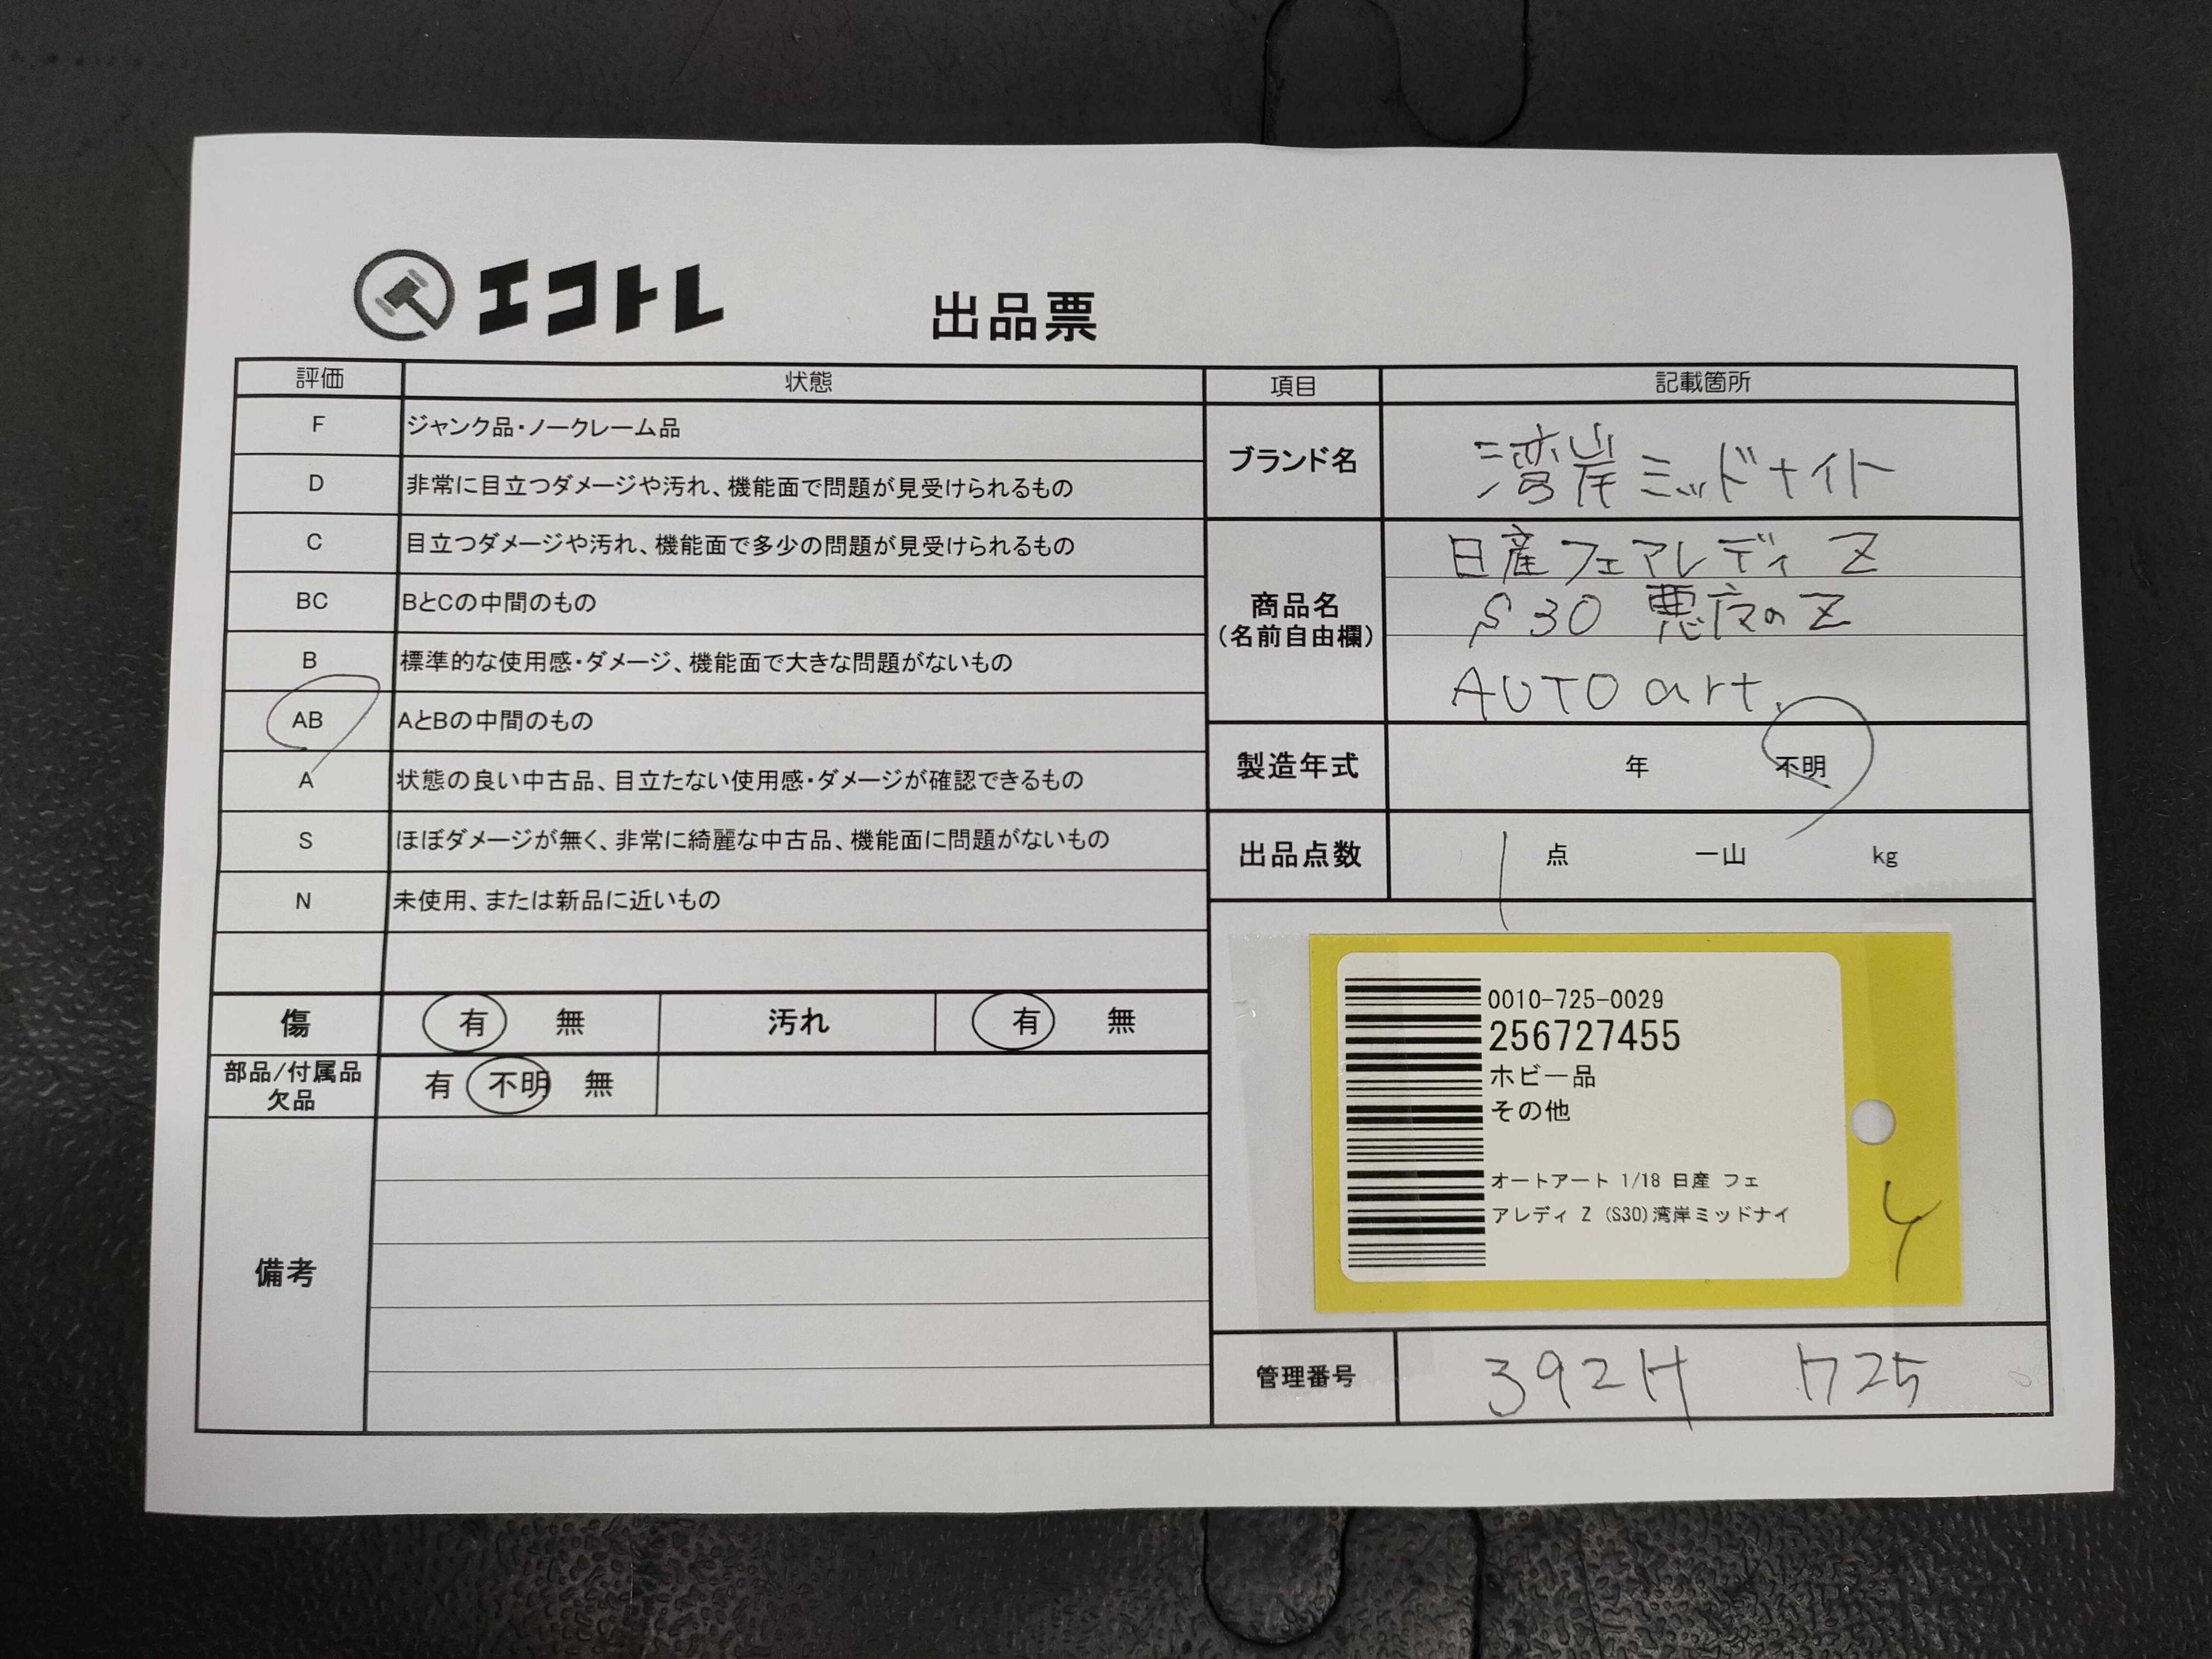 エコトレ
出品票
評価 状態
F ジャンク品・ノークレーム品
D 非常に目立つダメージや汚れ、機能面で問題が見受けられるもの
C 目立つダメージや汚れ、機能面で多少の問題が見受けられるもの
BC BとCの中間のもの
B 標準的な使用感・ダメージ、機能面で大きな問題がないもの
AB AとBの中間のもの
A 状態の良い中古品、目立たない使用感・ダメージが確認できるもの
S ほぼダメージが無く、非常に綺麗な中古品、機能面に問題がないもの
N 未使用、または新品に近いもの
傷 有 無 汚れ 有 無
部品/付属品
欠品
有 不明 無
備考
項目 記載箇所
ブランド名 湾岸ミッドナイト
商品名
(名前自由欄)
日産フェアレディ Z
S30 悪魔のZ
AUTO art.
製造年式 年 不明
出品点数 1 点 一山 kg
0010-725-0029
256727455
ホビー品
その他
オートアート 1/18 日産 フェ
アレディ Z (S30)湾岸ミッドナイ
管理番号 392H 725